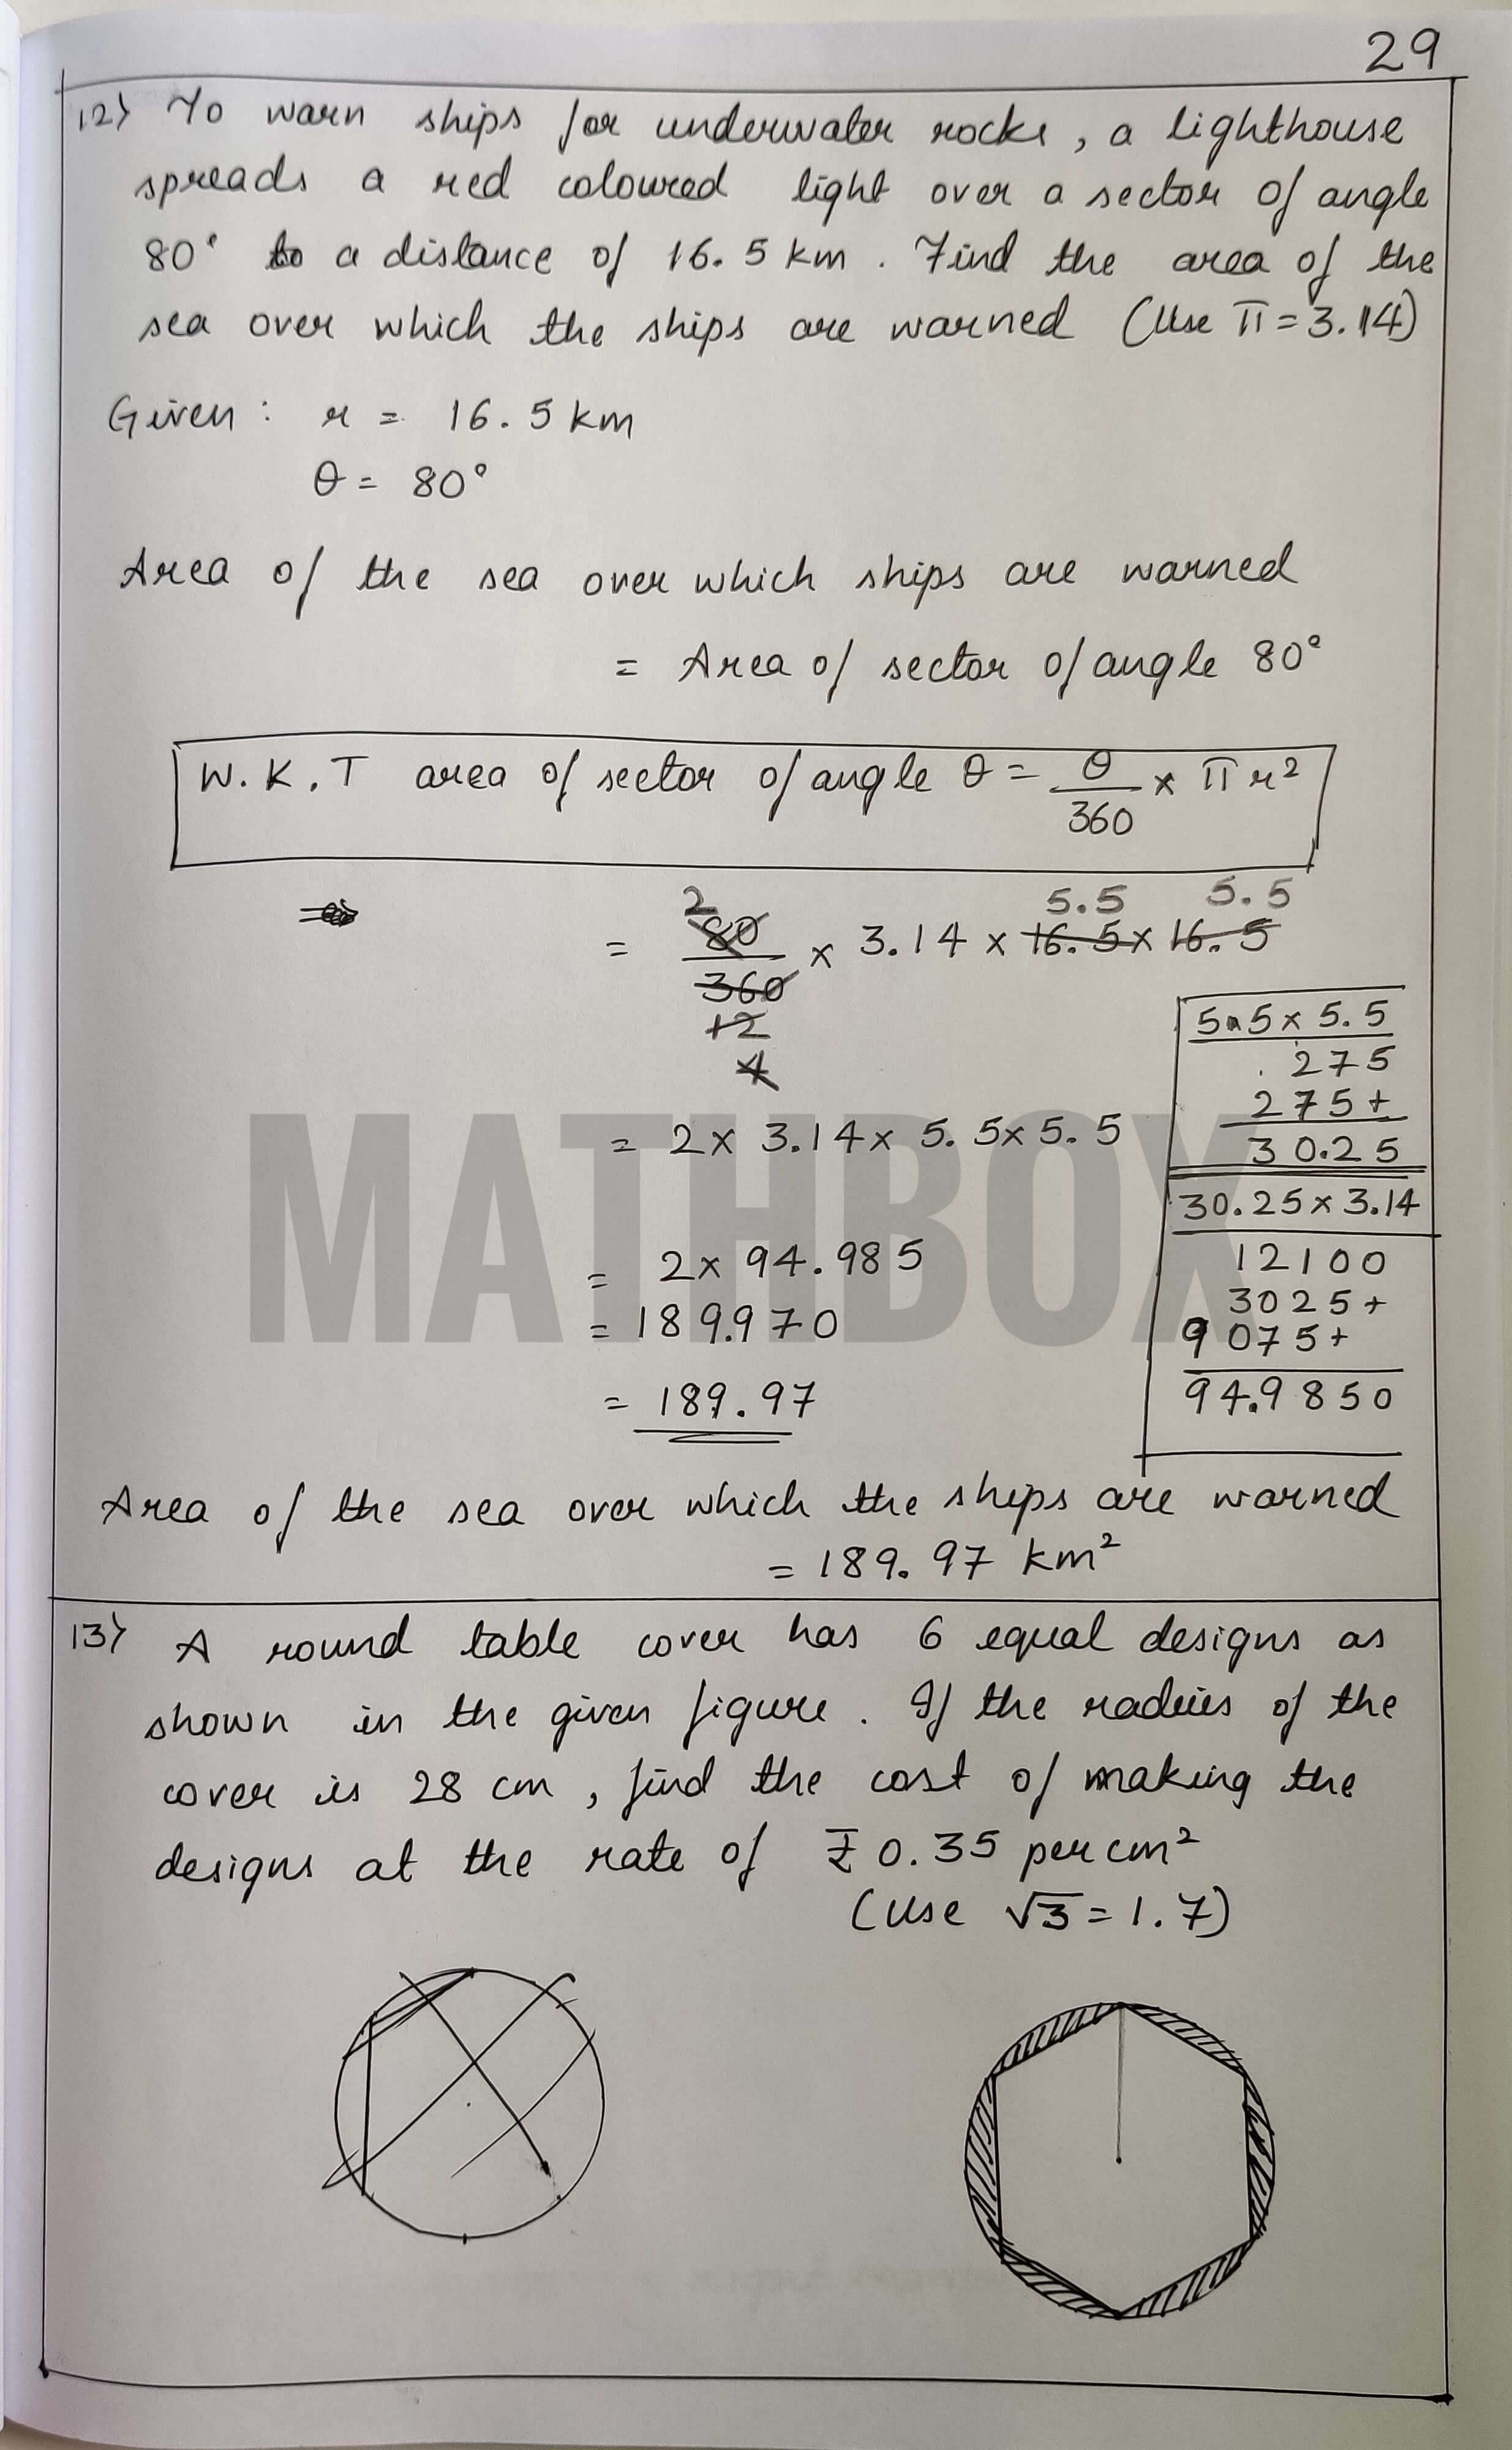 29
12) To warn ships for underwater rocks, a lighthouse
spreads a red coloured light over a sector of angle
80° to a distance of 16.5 km. Find the area of the
sea over which the ships are warned (Use π = 3.14)
Given : r = 16.5 km
θ = 80°
Area of the sea over which ships are warned
= Area of sector of angle 80°
W.K.T area of sector of angle θ = θ/360 × πr²
2 5.5 5.5
= 80/360 × 3.14 × 16.5 × 16.5
12
4
= 2 × 3.14 × 5.5 × 5.5
= 2 × 94.985
= 189.970
= 189.97
5.5 × 5.5
275
275+
30.25
30.25 × 3.14
12100
3025+
9075+
94.9850
MATHBOX
Area of the sea over which the ships are warned
= 189.97 km²
13) A round table cover has 6 equal designs as
shown in the given figure. If the radius of the
cover is 28 cm, find the cost of making the
designs at the rate of ₹0.35 per cm²
(Use √3 = 1.7)